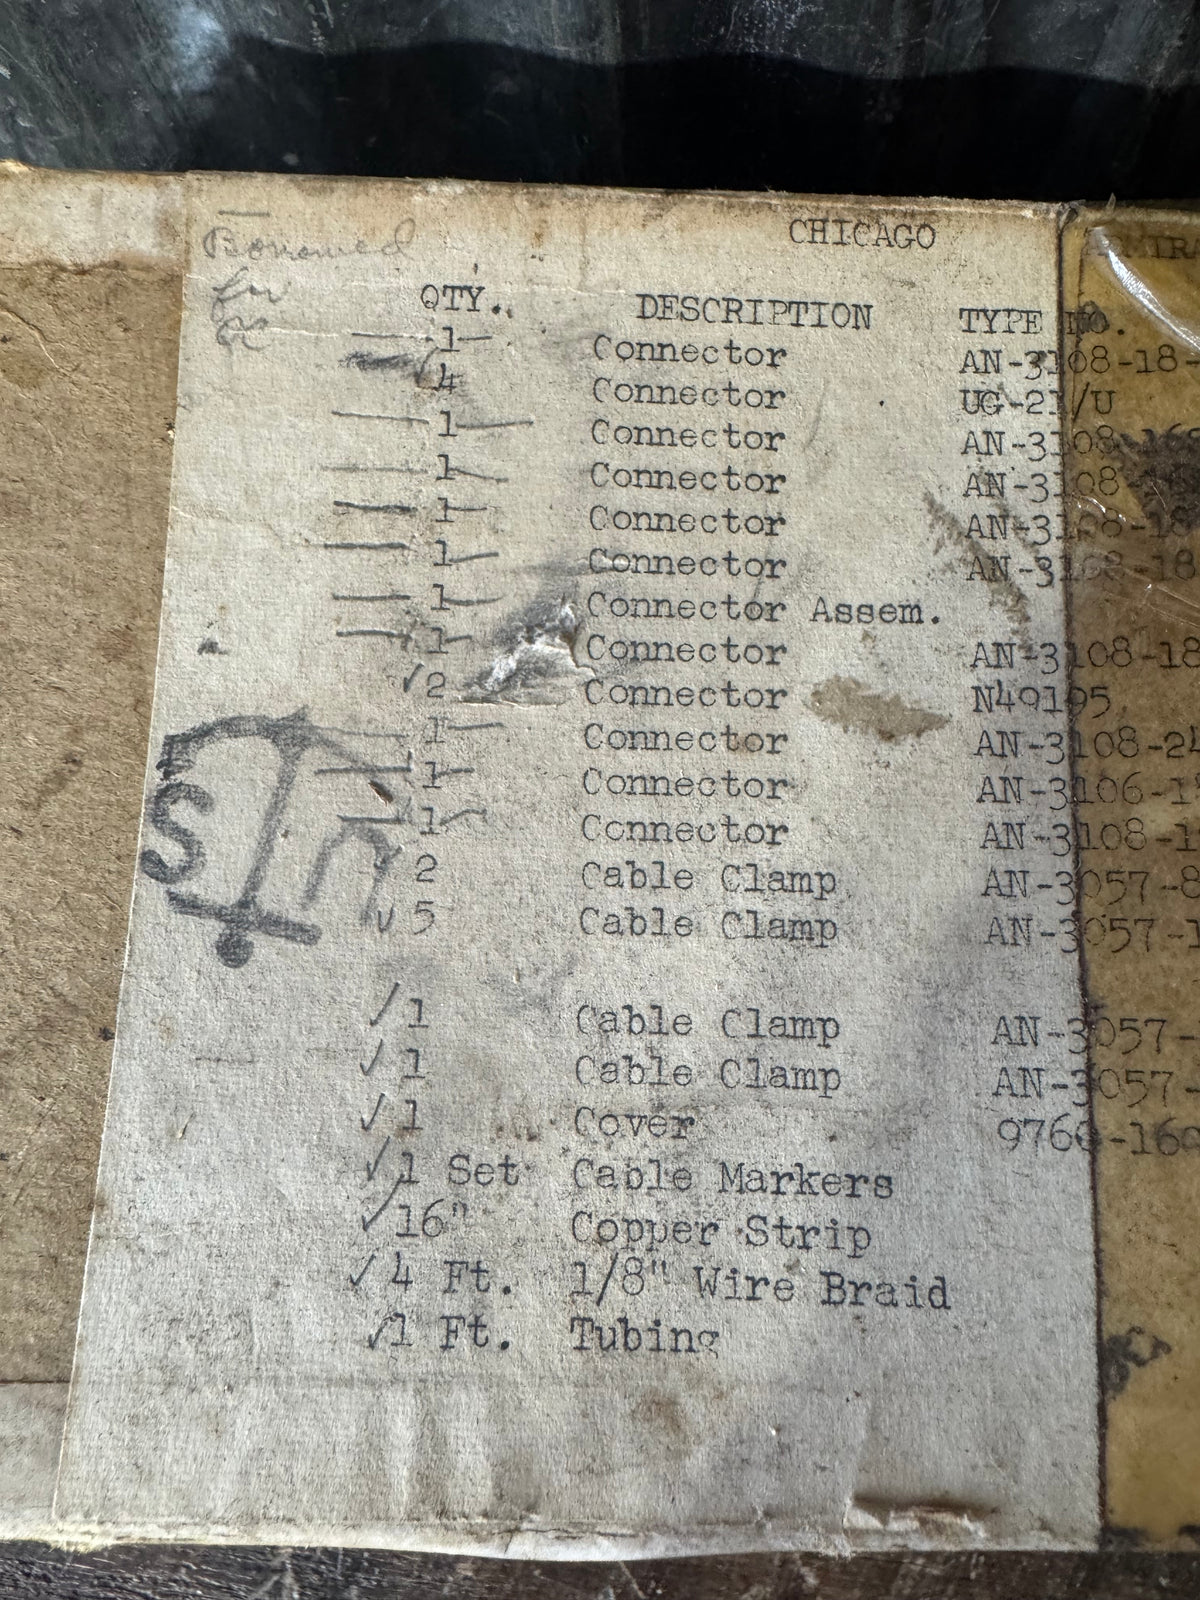 CHICAGO
Borrowed
for
QTY. DESCRIPTION TYPE NO.
1 Connector AN-3108-18-
4 Connector UG-21/U
1 Connector AN-3108-16S
1 Connector AN-3108-
1 Connector AN-3108-18
1 Connector AN-3108-18
1 Connector Assem.
1 Connector AN-3108-18
✓2 Connector N49195
1 Connector AN-3108-24
1 Connector AN-3106-1
1 Connector AN-3108-1
✓2 Cable Clamp AN-3057-8
✓5 Cable Clamp AN-3057-1
✓1 Cable Clamp AN-3057-
✓1 Cable Clamp AN-3057-
✓1 Cover 9760-160
✓1 Set Cable Markers
✓16" Copper Strip
✓4 Ft. 1/8" Wire Braid
✓1 Ft. Tubing